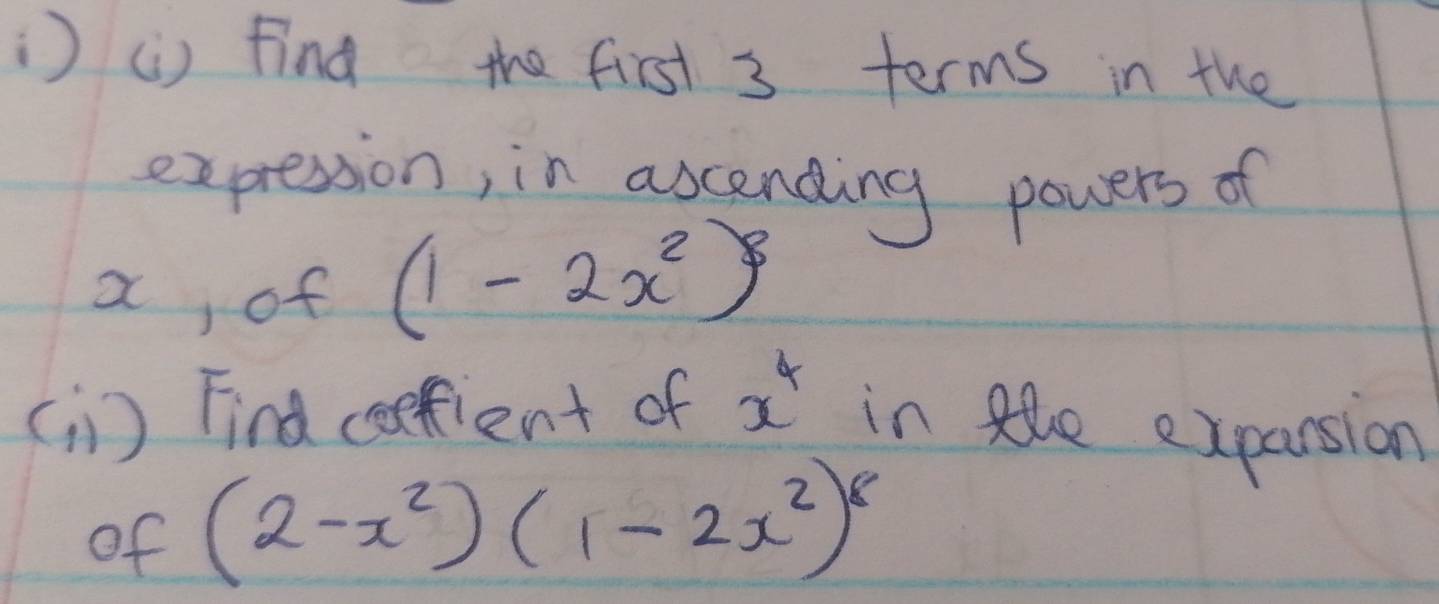 i) (i) Find the first 3 terms in the
expression, in ascending powers of
x, of (1 - 2x²)⁸
(ii) Find coeffient of x⁴ in the expansion
of (2-x²) (1 - 2x²)⁸